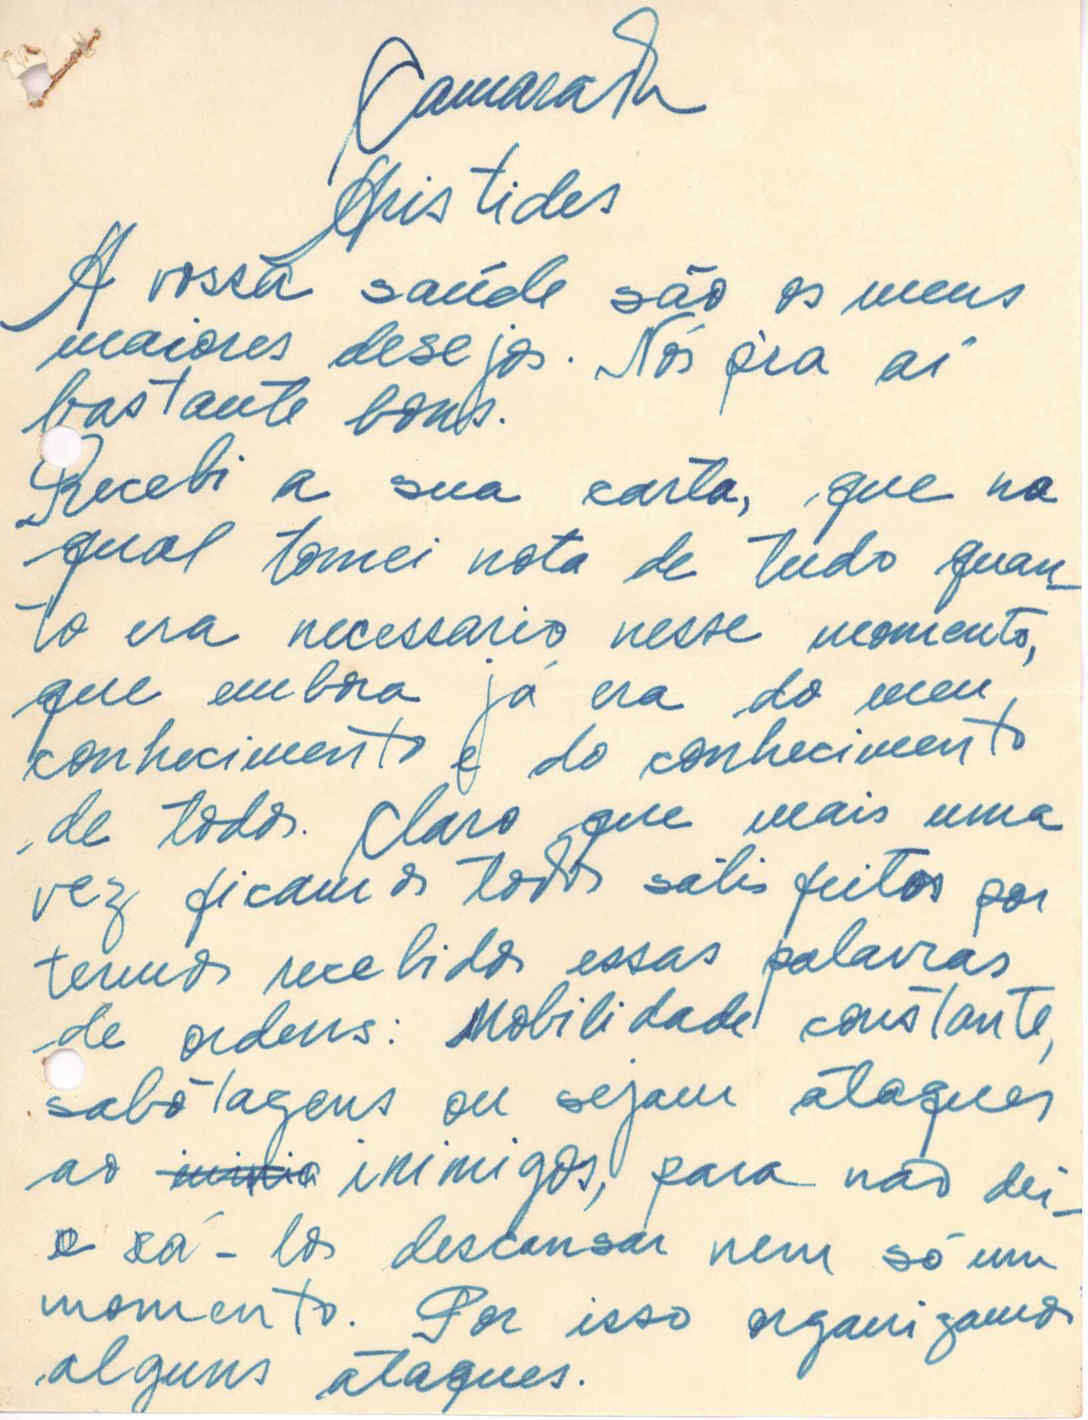 Camarada
Aristides
A vossa saúde são os meus
maiores desejos. Nós pra aí
bastante bons.
Recebi a sua carta, que na
qual tomei nota de tudo quan-
to era necessario nesse momento,
que embora já era do meu
conhecimento e do conhecimento
de todos. Claro que mais uma
vez ficamos todos satisfeitos por
termos recebidos essas palavras
de ordens: Mobilidade constante,
sabotagens ou sejam ataques
ao inimigos, para não dei-
xá-los descansar nem só um
momento. Por isso organizamos
alguns ataques.